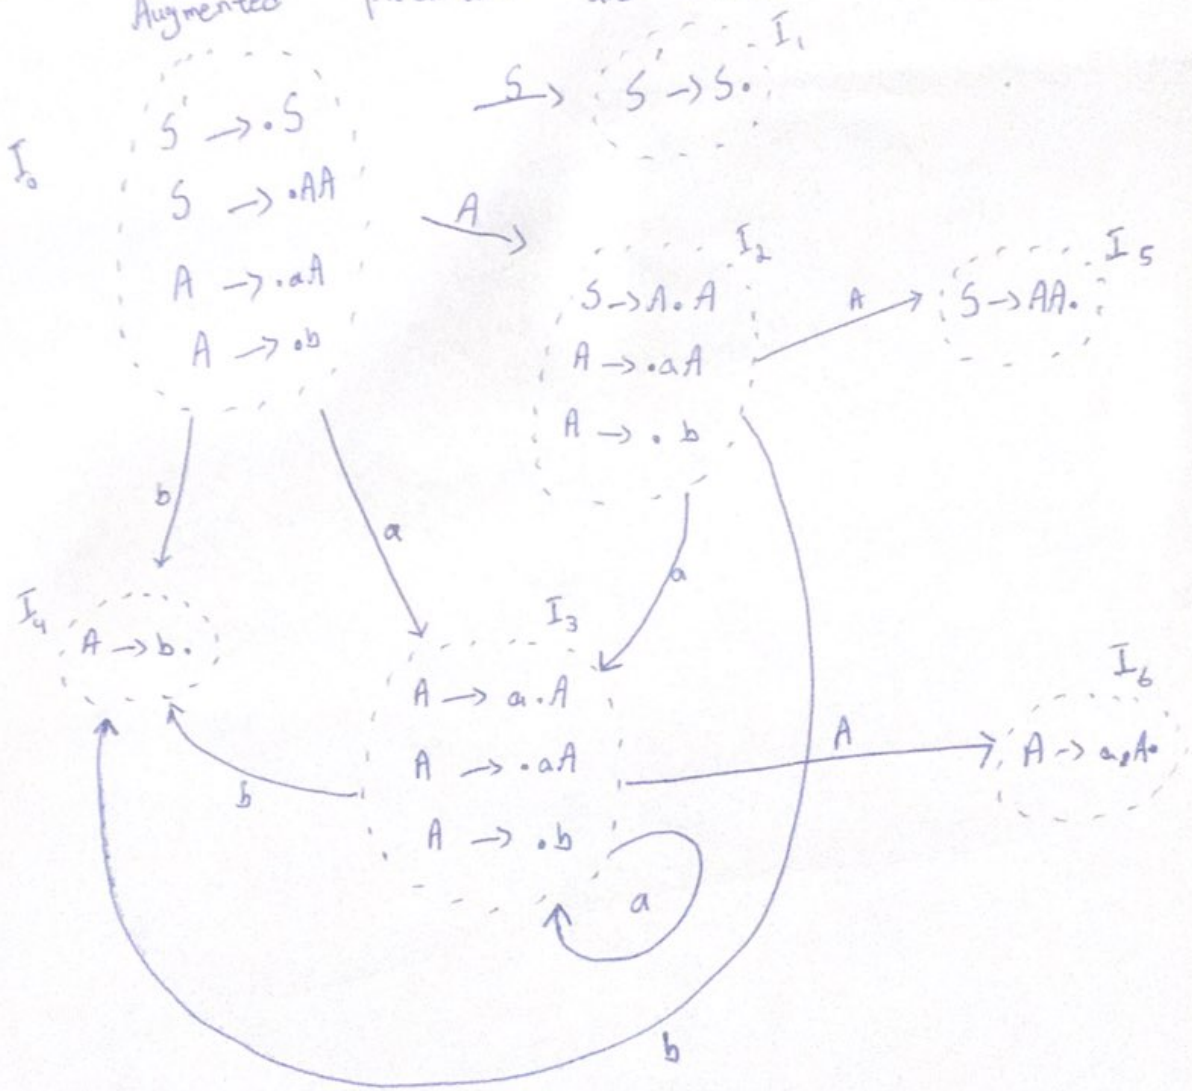 Augmented
I₁
S' → S.
S
I₀
S' → .S
S → .AA
A → .aA
A → .b
A
I₂
S → A.A
A → .aA
A → . b
A
I₅
S → AA.
b
a
a
I₄
A → b.
I₃
A → a.A
A → .aA
A → .b
b
a
A
I₆
A → a.A.
b